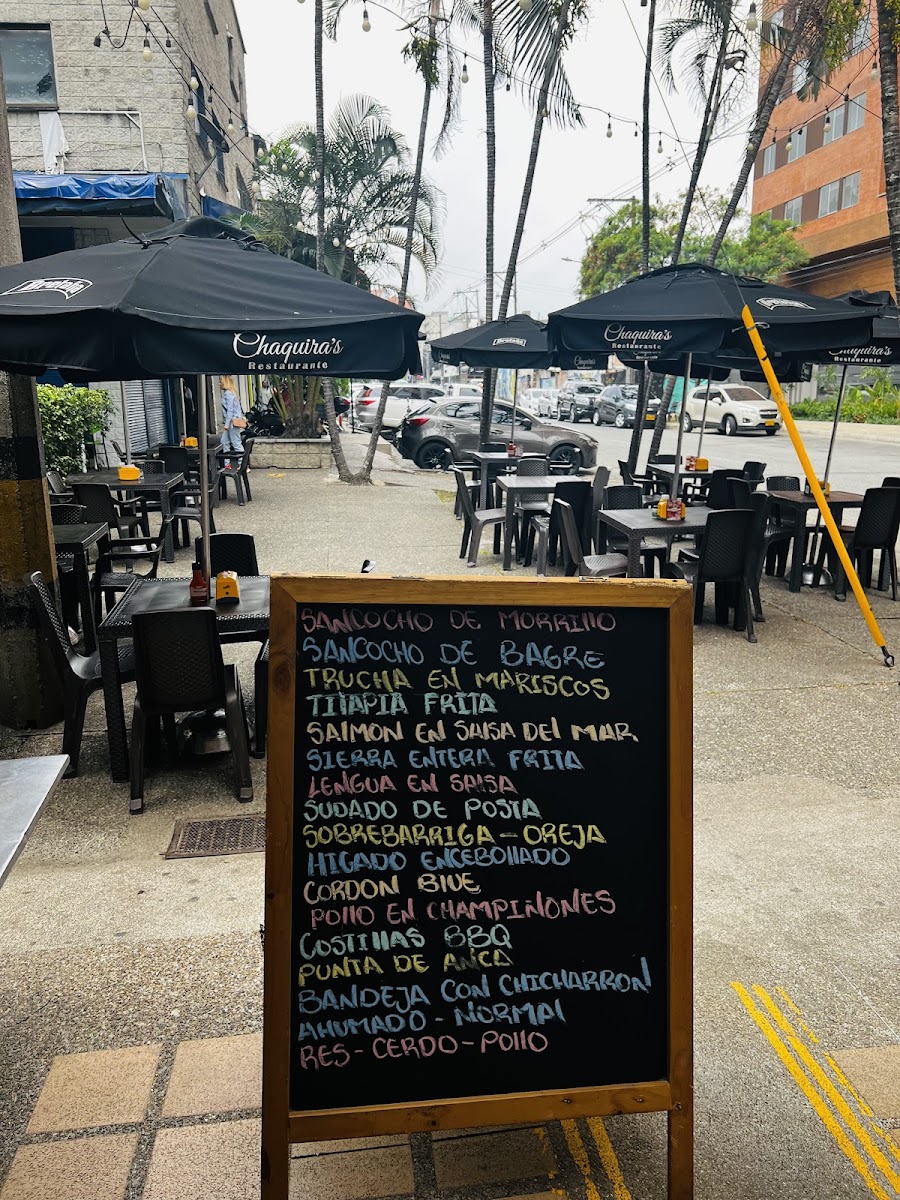 Chaquira's
Restaurante
Chaquira's
Restaurante
Chaquira's
Restaurante
SANCOCHO DE MORRILLO
SANCOCHO DE BAGRE
TRUCHA EN MARISCOS
TILAPIA FRITA
SALMON EN SALSA DEL MAR
SIERRA ENTERA FRITA
LENGUA EN SALSA
SUDADO DE POSTA
SOBREBARRIGA - OREJA
HIGADO ENCEBOLLADO
CORDON BLUE
POLLO EN CHAMPIÑONES
COSTILLAS BBQ
PUNTA DE ANCA
BANDEJA CON CHICHARRON
AHUMADO - NORMAL
RES - CERDO - POLLO